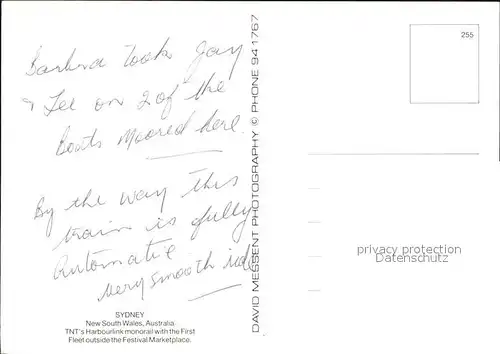 Barbra took Jay
& Lee on 2 of the
Boats moored here.
By the way this
train is fully
Automatic
very smooth ride
SYDNEY
New South Wales, Australia.
TNT's Harbourlink monorail with the First
Fleet outside the Festival Marketplace.
DAVID MESSENT PHOTOGRAPHY © PHONE 94 1767
255
privacy protection
Datenschutz